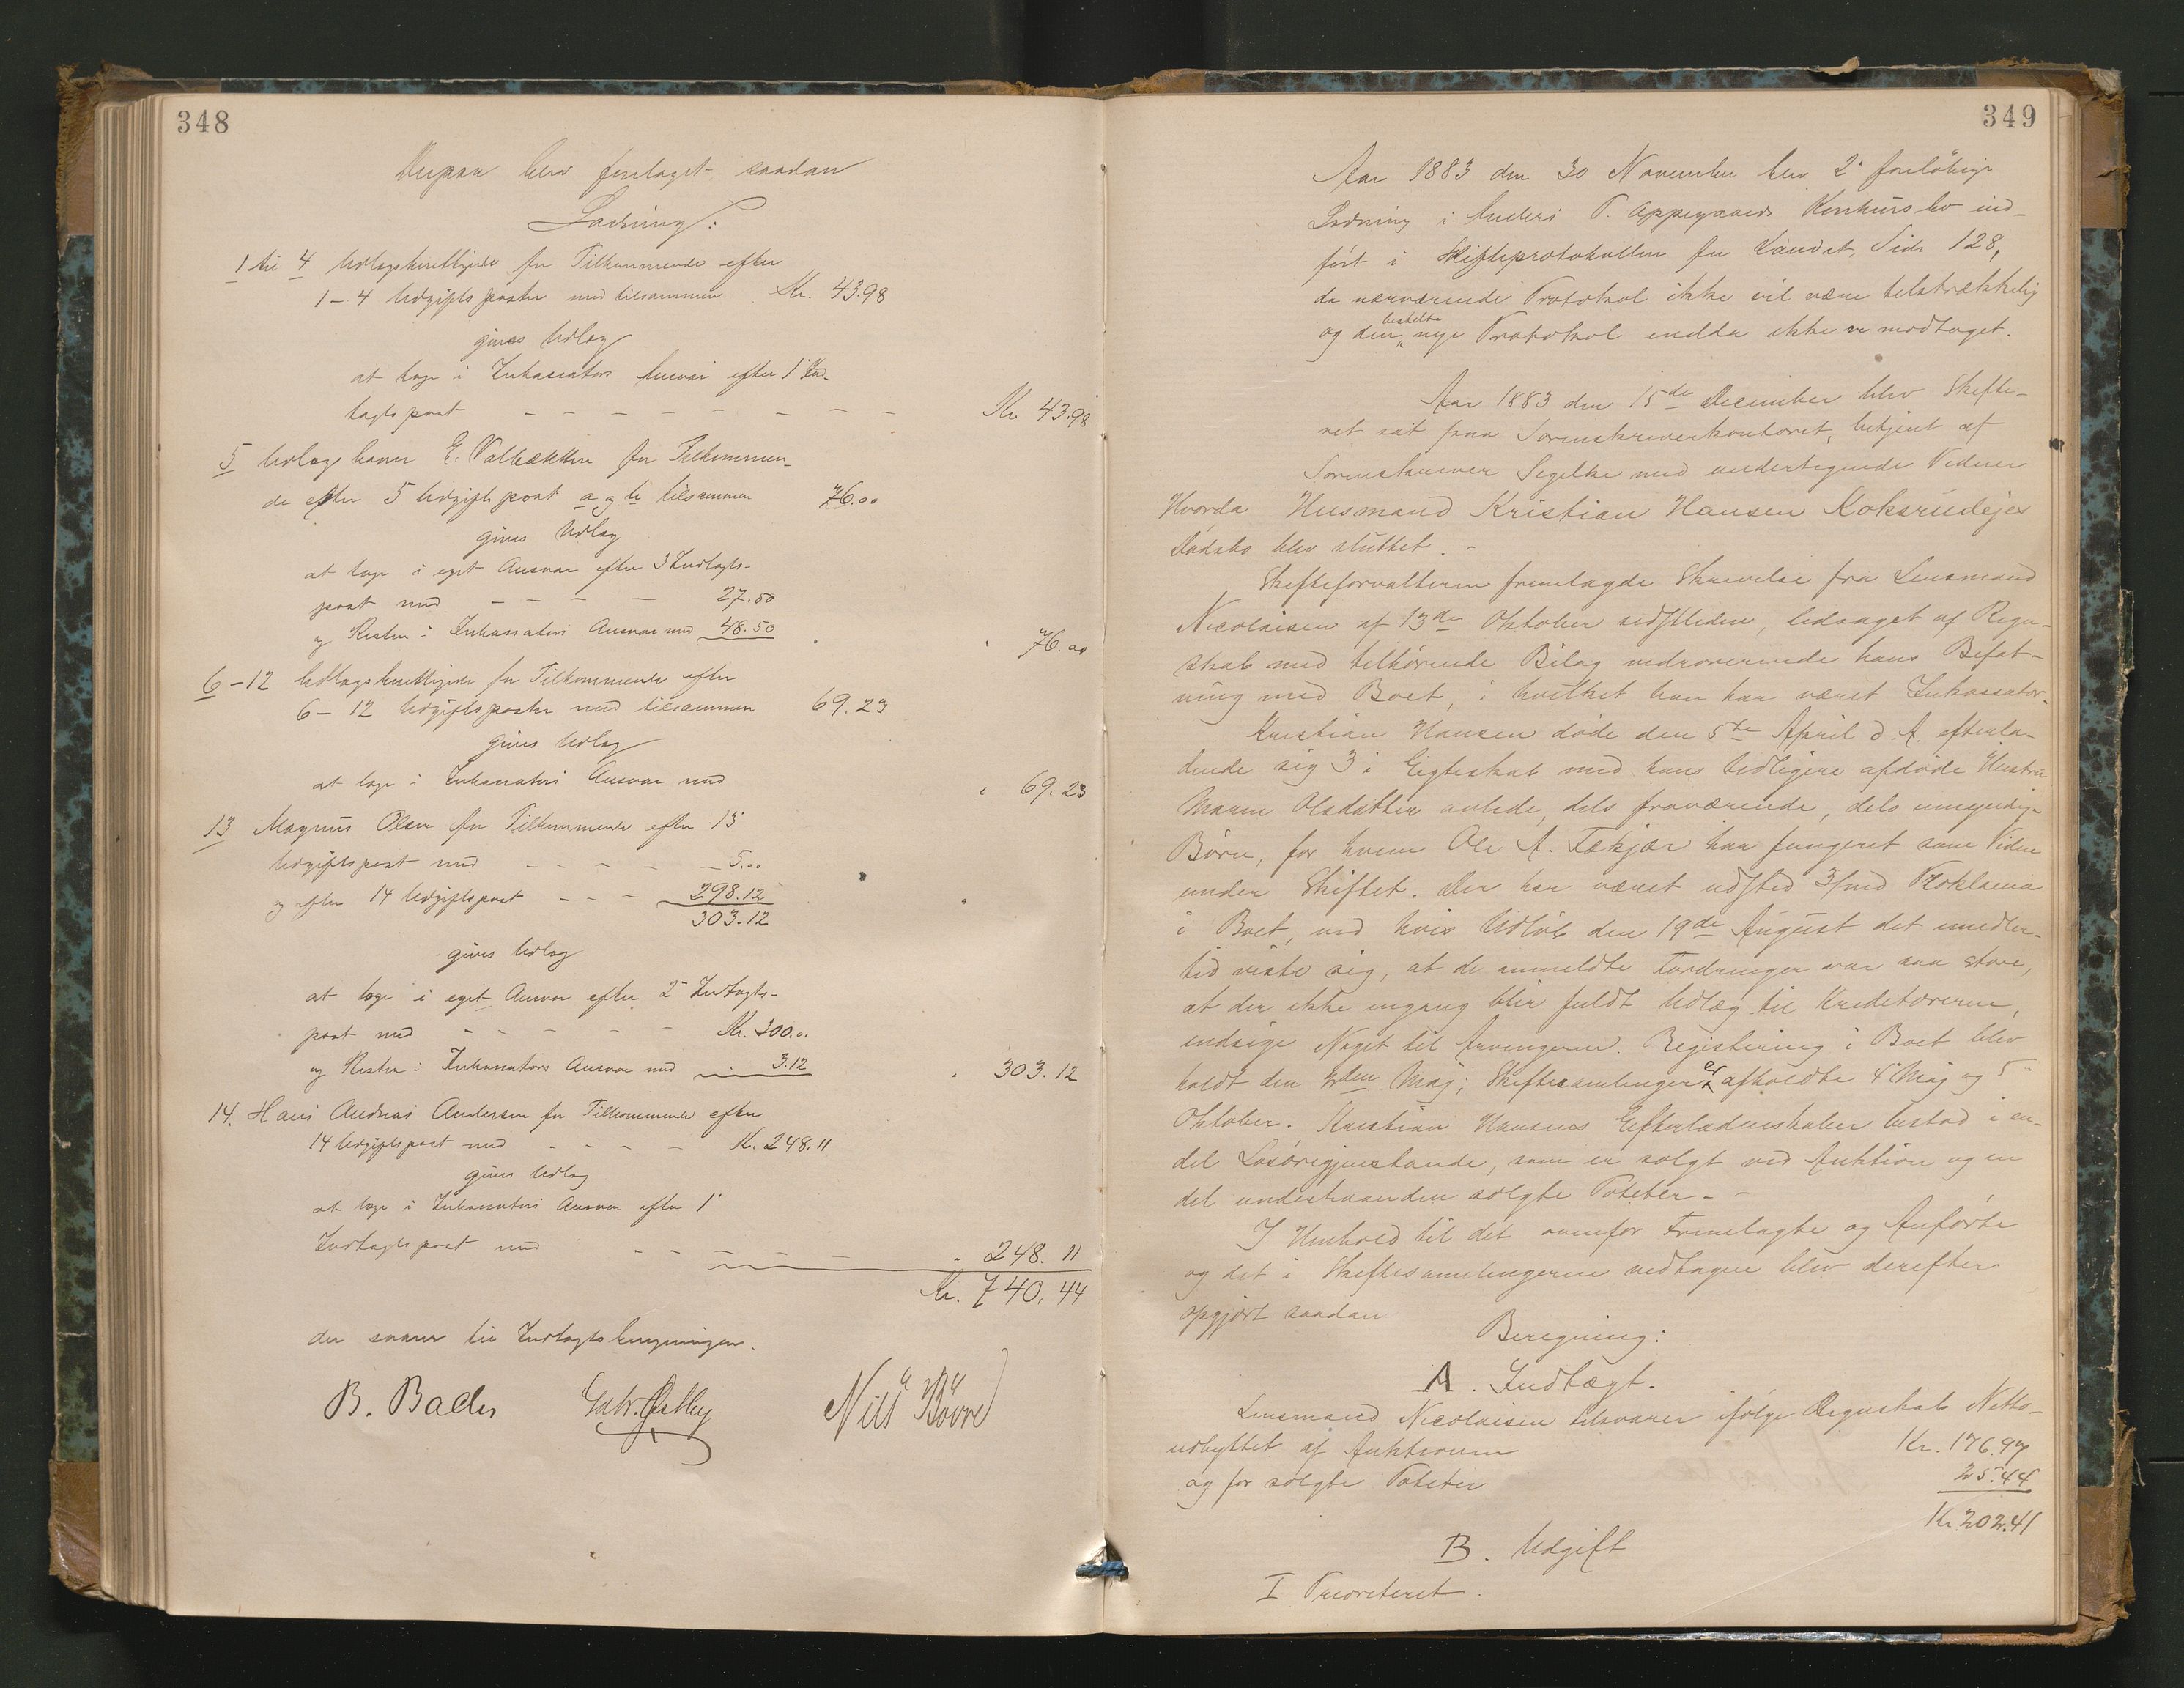 348
Derpaa blev foretaget saadan
Lodning:
1 til 4 Udlagsberettigede for Tilkommende efter
1-4 Udgiftsposter med tilsammen Kr. 43.98
gives Udlag
at tage i Inkassators Ansvar efter 1 Ind-
tagtspost - - - - - - - - - Kr 43.98
5 Udlagshaver E. Valbækken for Tilkommen-
de efter 5 Udgiftspost a og b tilsammen 76.00
gives Udlag
at tage i eget Ansvar efter 3 Indtagts-
post med - - - - 27.50
og Resten i Inkassators Ansvar med 48.50 " 76.00
6-12 Udlagsberettigede for Tilkommende efter
6-12 Udgiftsposter med tilsammen 69.23
gives Udlag
at tage i Inkassators Ansvar med " 69.23
13 Magnus Olsen for Tilkommende efter 13
Udgiftspost med - - - - - 5.00
og efter 14 Udgiftspost - - - 298.12
303.12
gives Udlag
at tage i eget Ansvar efter 2 Indtagts-
post med - - - - - Kr. 300.00
og Resten i Inkassators Ansvar med 3.12 " 303.12
14. Hans Andreas Andersen for Tilkommende efter
14 Udgiftspost med - - - - Kr. 248.11
gives Udlag
at tage i Inkassators Ansvar efter 1
Indtagtspost med - - - - - " 248.11
Kr. 740.44
der svarer til Indtagtsberegningen.
B. Bader Østby Nils Bøvre
349
Aar 1883 den 30 November blev 2' foreløbige
Lodning i Anders T. Appegaards Konkursbo ind-
ført i Skifteprotokollen for Landet, Side 128,
da nærværende Protokol ikke vil være tilstrækkelig
og den bestelte nye Protokol endda ikke er modtaget.
Aar 1883 den 15de December blev Skifte-
ret sat paa Sorenskriverkontoret, betjent af
Sorenskriver Segelke med undertegnede Vidner
Hvorda Husmand Kristian Hansen Koksrudejes
Dødsbo blev sluttet. -
Skifteforvalteren fremlagde Skrivelse fra Lensmand
Nicolaisen af 13de Oktober sidstleden, ledsaget af Regn-
skab med tilhørende Bilag vedrørerende hans Befat-
ning med Boet, i hvilket han har været Inkassator.
Kristian Hansen døde den 5te April d. A. efterla-
dende sig 3 i Egteskab med hans tidligere afdøde Hustru
Maren Olsdatter avlede, dels fraværende, dels umyndige
Børn, for hvem Ole A. Fekjær har fungeret som Vidne
under Skiftet. Der har været udsted 3/md Proklama
i Boet, ved hvis Udløb den 19de August det imidler-
tid viste sig, at de anmeldte Fordringer var saa store,
at der ikke engang blir fuldt Udlæg til Kreditorerne,
endsige Noget til Arvingerne. Registrering i Boet blev
holdt den 3den Maj; Skiftesamlinger er afholdte 4' Maj og 5'
Oktober. Kristian Hansens Efterladenskaber bestod i en-
del Løsøregjenstande, som er solgt ved Auktion og en
del underhaanden solgte Poteter. -
I Henhold til det ovenfor Fremlagte og Anførte
og det i Skiftesamlingerne vedtagne blev derefter
opgjort saadan
Beregning:
A. Indtægt.
Lensmand Nicolaisen tilsvarer ifølge Regnskab Netto-
udbyttet af Auktionen Kr. 176.97
og for solgte Poteter 25.44
Kr. 202.41
B. Udgift
I Prioriteret.